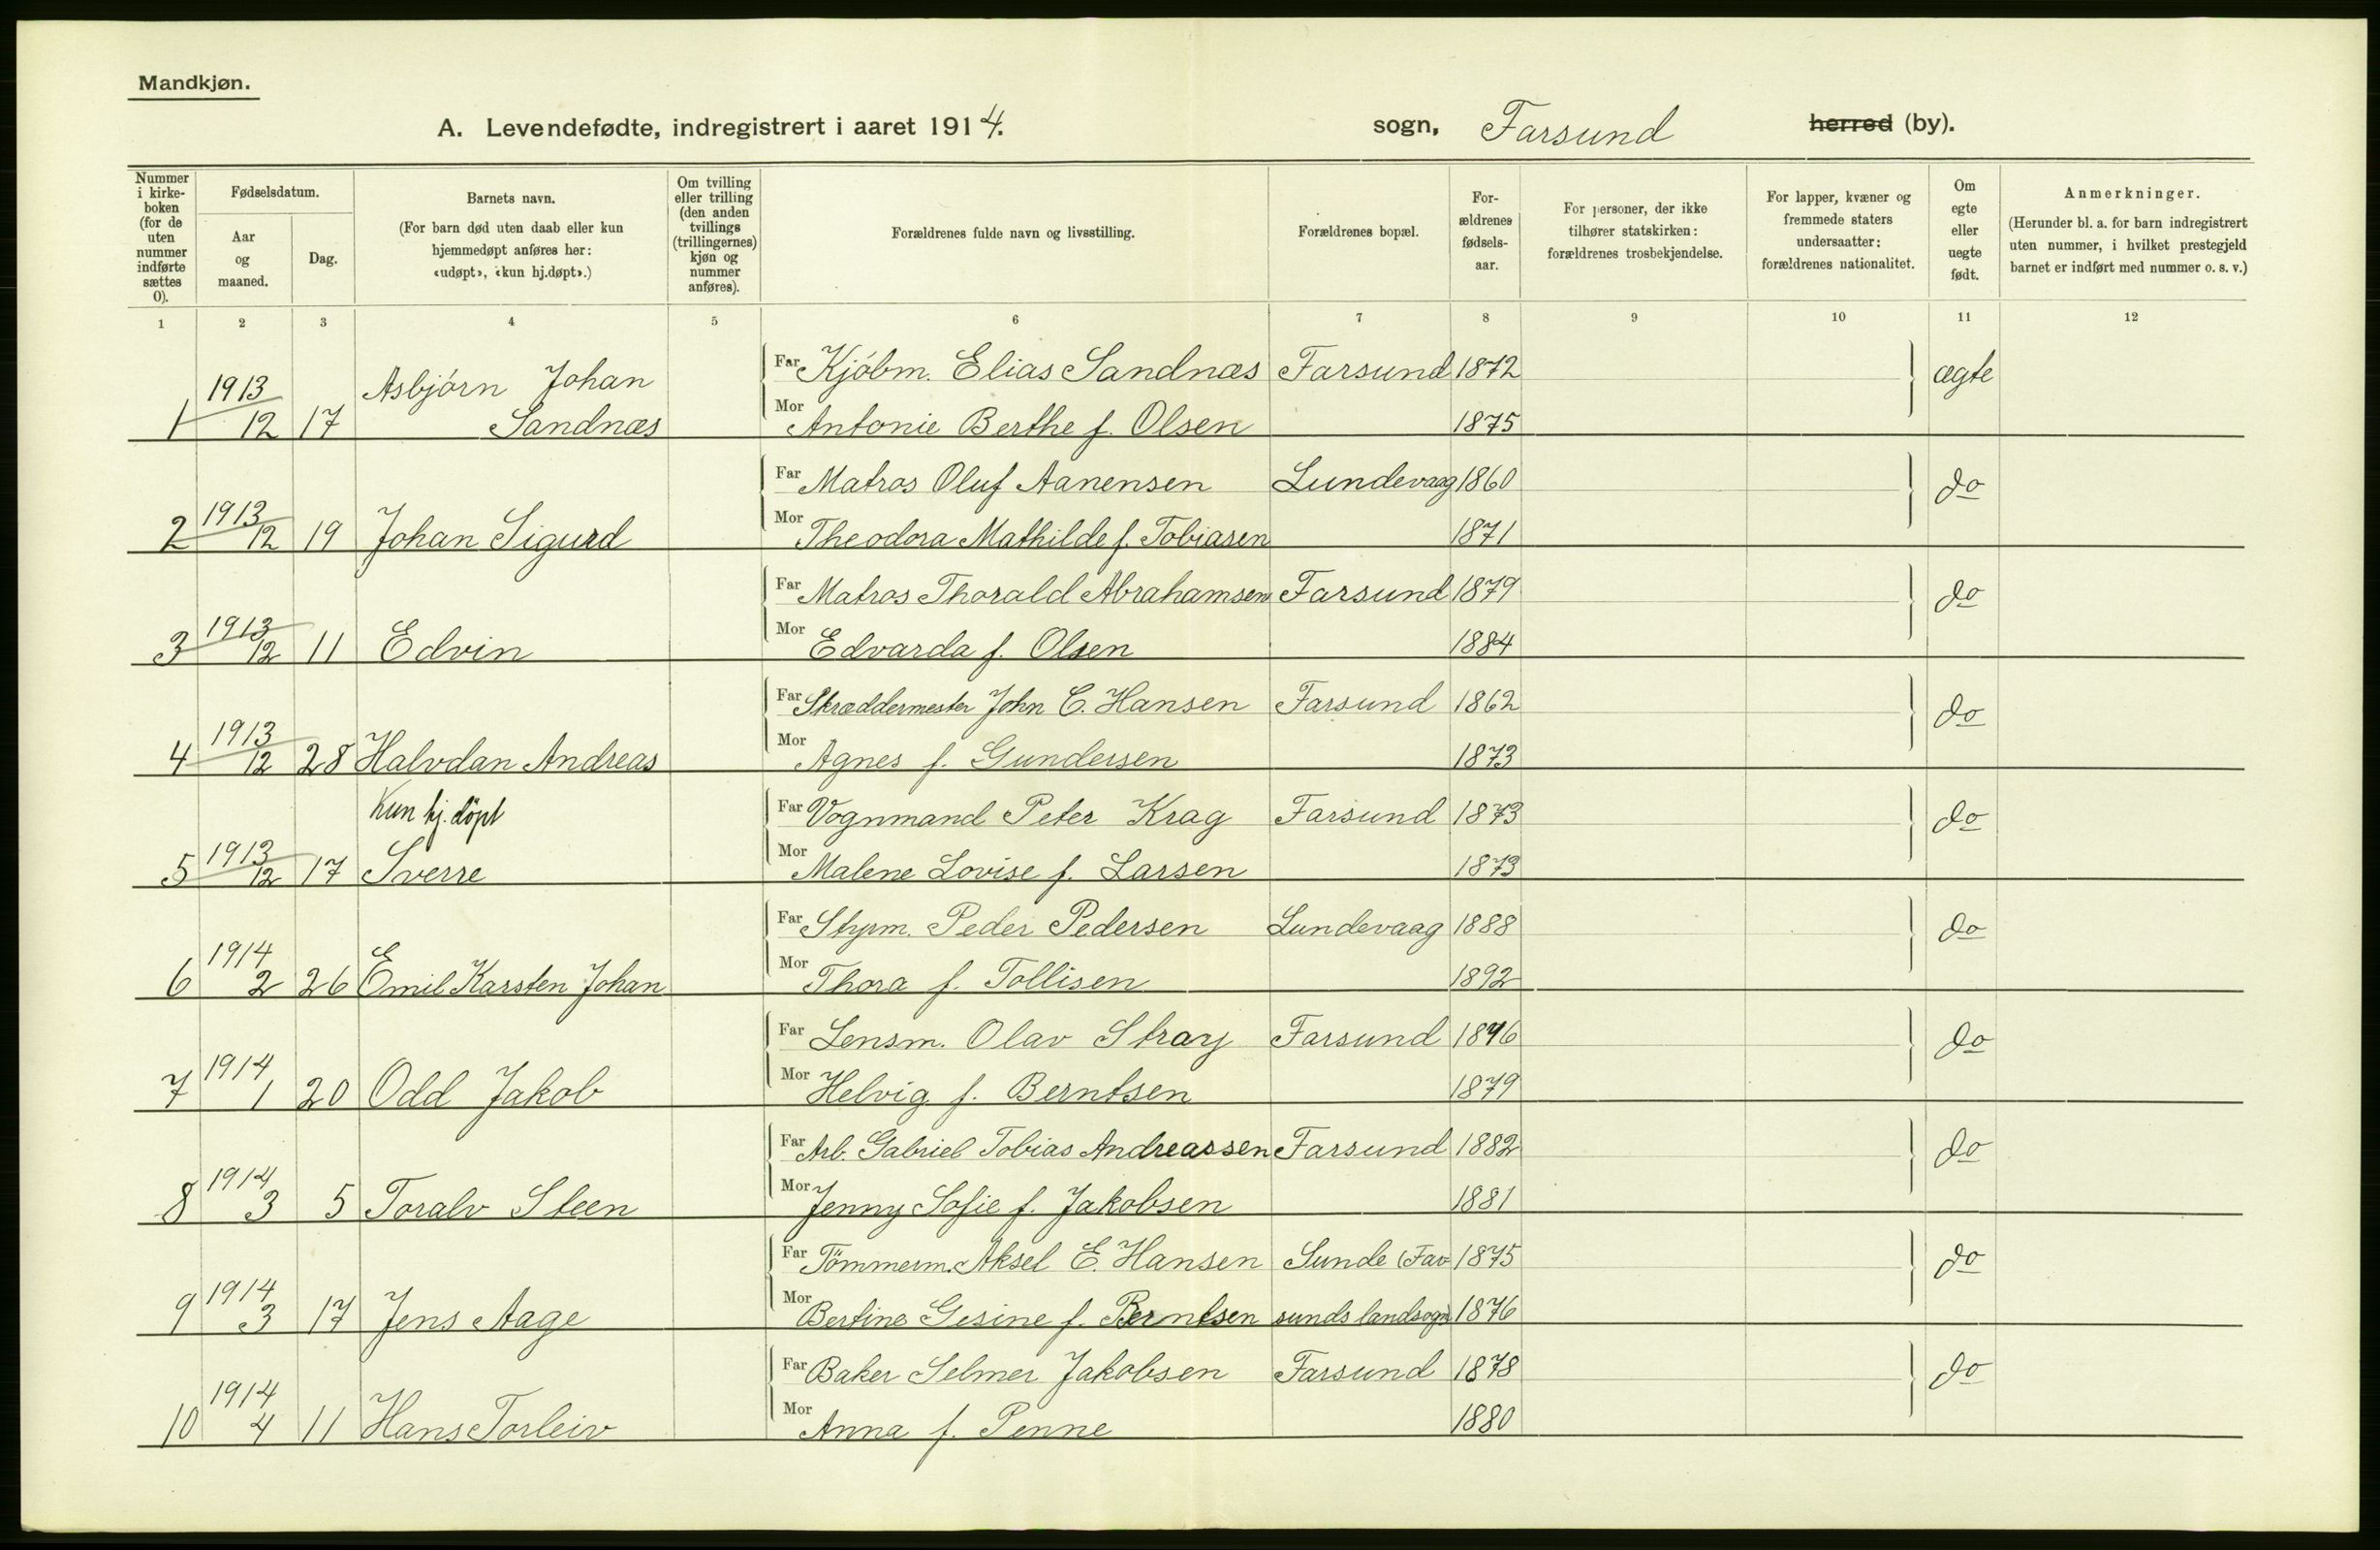 Mandkjøn.
A. Levendefødte, indregistrert i aaret 1914. sogn, Farsund herred (by).
Nummer i kirke-boken (for de uten nummer indførte sættes 0).
Fødselsdatum.
Aar og maaned.
Dag.
Barnets navn.
(For barn død uten daab eller kun hjemmedøpt anføres her: «udøpt», «kun hj.døpt».)
Om tvilling eller trilling (den anden tvillings (trillingernes) kjøn og nummer anføres).
Forældrenes fulde navn og livsstilling.
Forældrenes bopæl.
For-ældrenes fødsels-aar.
For personer, der ikke tilhører statskirken: forældrenes trosbekjendelse.
For lapper, kvæner og fremmede staters undersaatter: forældrenes nationalitet.
Om egte eller uegte født.
Anmerkninger.
(Herunder bl. a. for barn indregistrert uten nummer, i hvilket prestegjeld barnet er indført med nummer o. s. v.)
1 2 3 4 5 6 7 8 9 10 11 12
1913 Asbjørn Johan Far Kjóbm. Elias Sandnæs Farsund 1872 ægte
1 12 17 Sandnæs Mor Antonie Berthe f. Olsen 1875
Far Matros Oluf Aanensen Lundevaag 1860 do
2 1913 12 19 Johan Sigurd Mor Theodora Mathilde f. Tobiasen 1871
Far Matros Thorald Abrahamsen Farsund 1879 do
3 1913 12 11 Edvin Mor Edvarda f. Olsen 1884
Far Skræddermester John C. Hansen Farsund 1862 do
4 1913 12 28 Halvdan Andreas Mor Agnes f. Gundersen 1873
Kun hj. døpt Far Vognmand Peter Krag Farsund 1873 do
5 1913 12 17 Sverre Mor Malene Lovise f. Larsen 1873
Far Styrm. Peder Pedersen Lundevaag 1888 do
6 1914 2 26 Emil Karsten Johan Mor Thora f. Tollisen 1892
Far Lensm. Olav Stray Farsund 1876 do
7 1914 1 20 Odd Jakob Mor Helvig f. Berntsen 1879
Far Arb. Gabriel Tobias Andreassen Farsund 1882 do
8 1914 3 5 Toralv Steen Mor Jenny Sofie f. Jakobsen 1881
Far Tömmerm. Aksel E. Hansen Sunde (Far- 1875 do
9 1914 3 17 Jens Aage Mor Bertine Gesine f. Berntsen sunds landsogn) 1876
Far Baker Selmer Jakobsen Farsund 1878 do
10 1914 4 11 Hans Torleiv Mor Anna f. Penne 1880